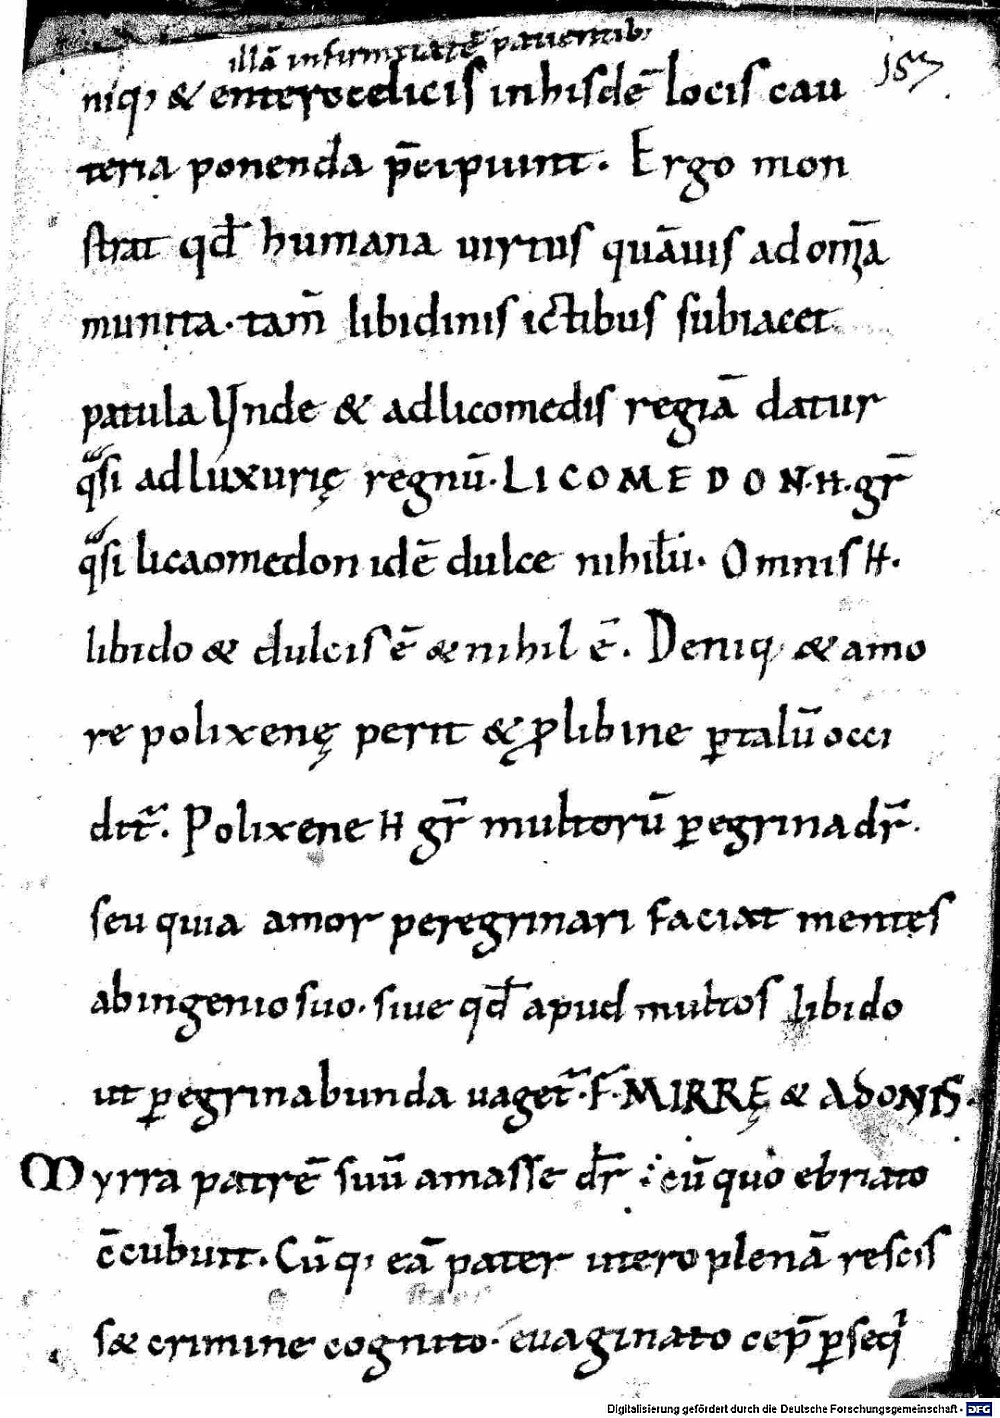 illā infirmitatē patientib;
157
niq; & enterocelicis inhisdē locis cau
teria ponenda p̄cipiunt. Ergo mon
strat qđ humana uirtus quāuis ad om̄ia
munita. tam̄ libidinis ictibus subiacet
patula Unde & adlicomedis regiā datur
qͣsi adluxurię regnū. LICOMEDON. H. gr̄
qͣsi licaomedon idē dulce nihilū. Omnis H.
libido & dulcis ē & nihil ē. Deniq; & amo
re polixenę perit & ꝓ libine ꝑ talū occi
dit᷑. Polixene H gr̄ multorū ꝑegrina dr̄.
seu quia amor peregrinari faciat mentes
abingenio suo. siue qđ apud multos libido
ut ꝑegrinabunda uaget᷑. F. MIRRĘ & ADONIS.
Myrra patrē suū amasse dr̄ cū quo ebriato
c̄cubuit. Cūq; eā pater utero plenā rescis
s& crimine cognito. euaginato cep̄ ꝑseq̇
Digitalisierung gefördert durch die Deutsche Forschungsgemeinschaft - DFG